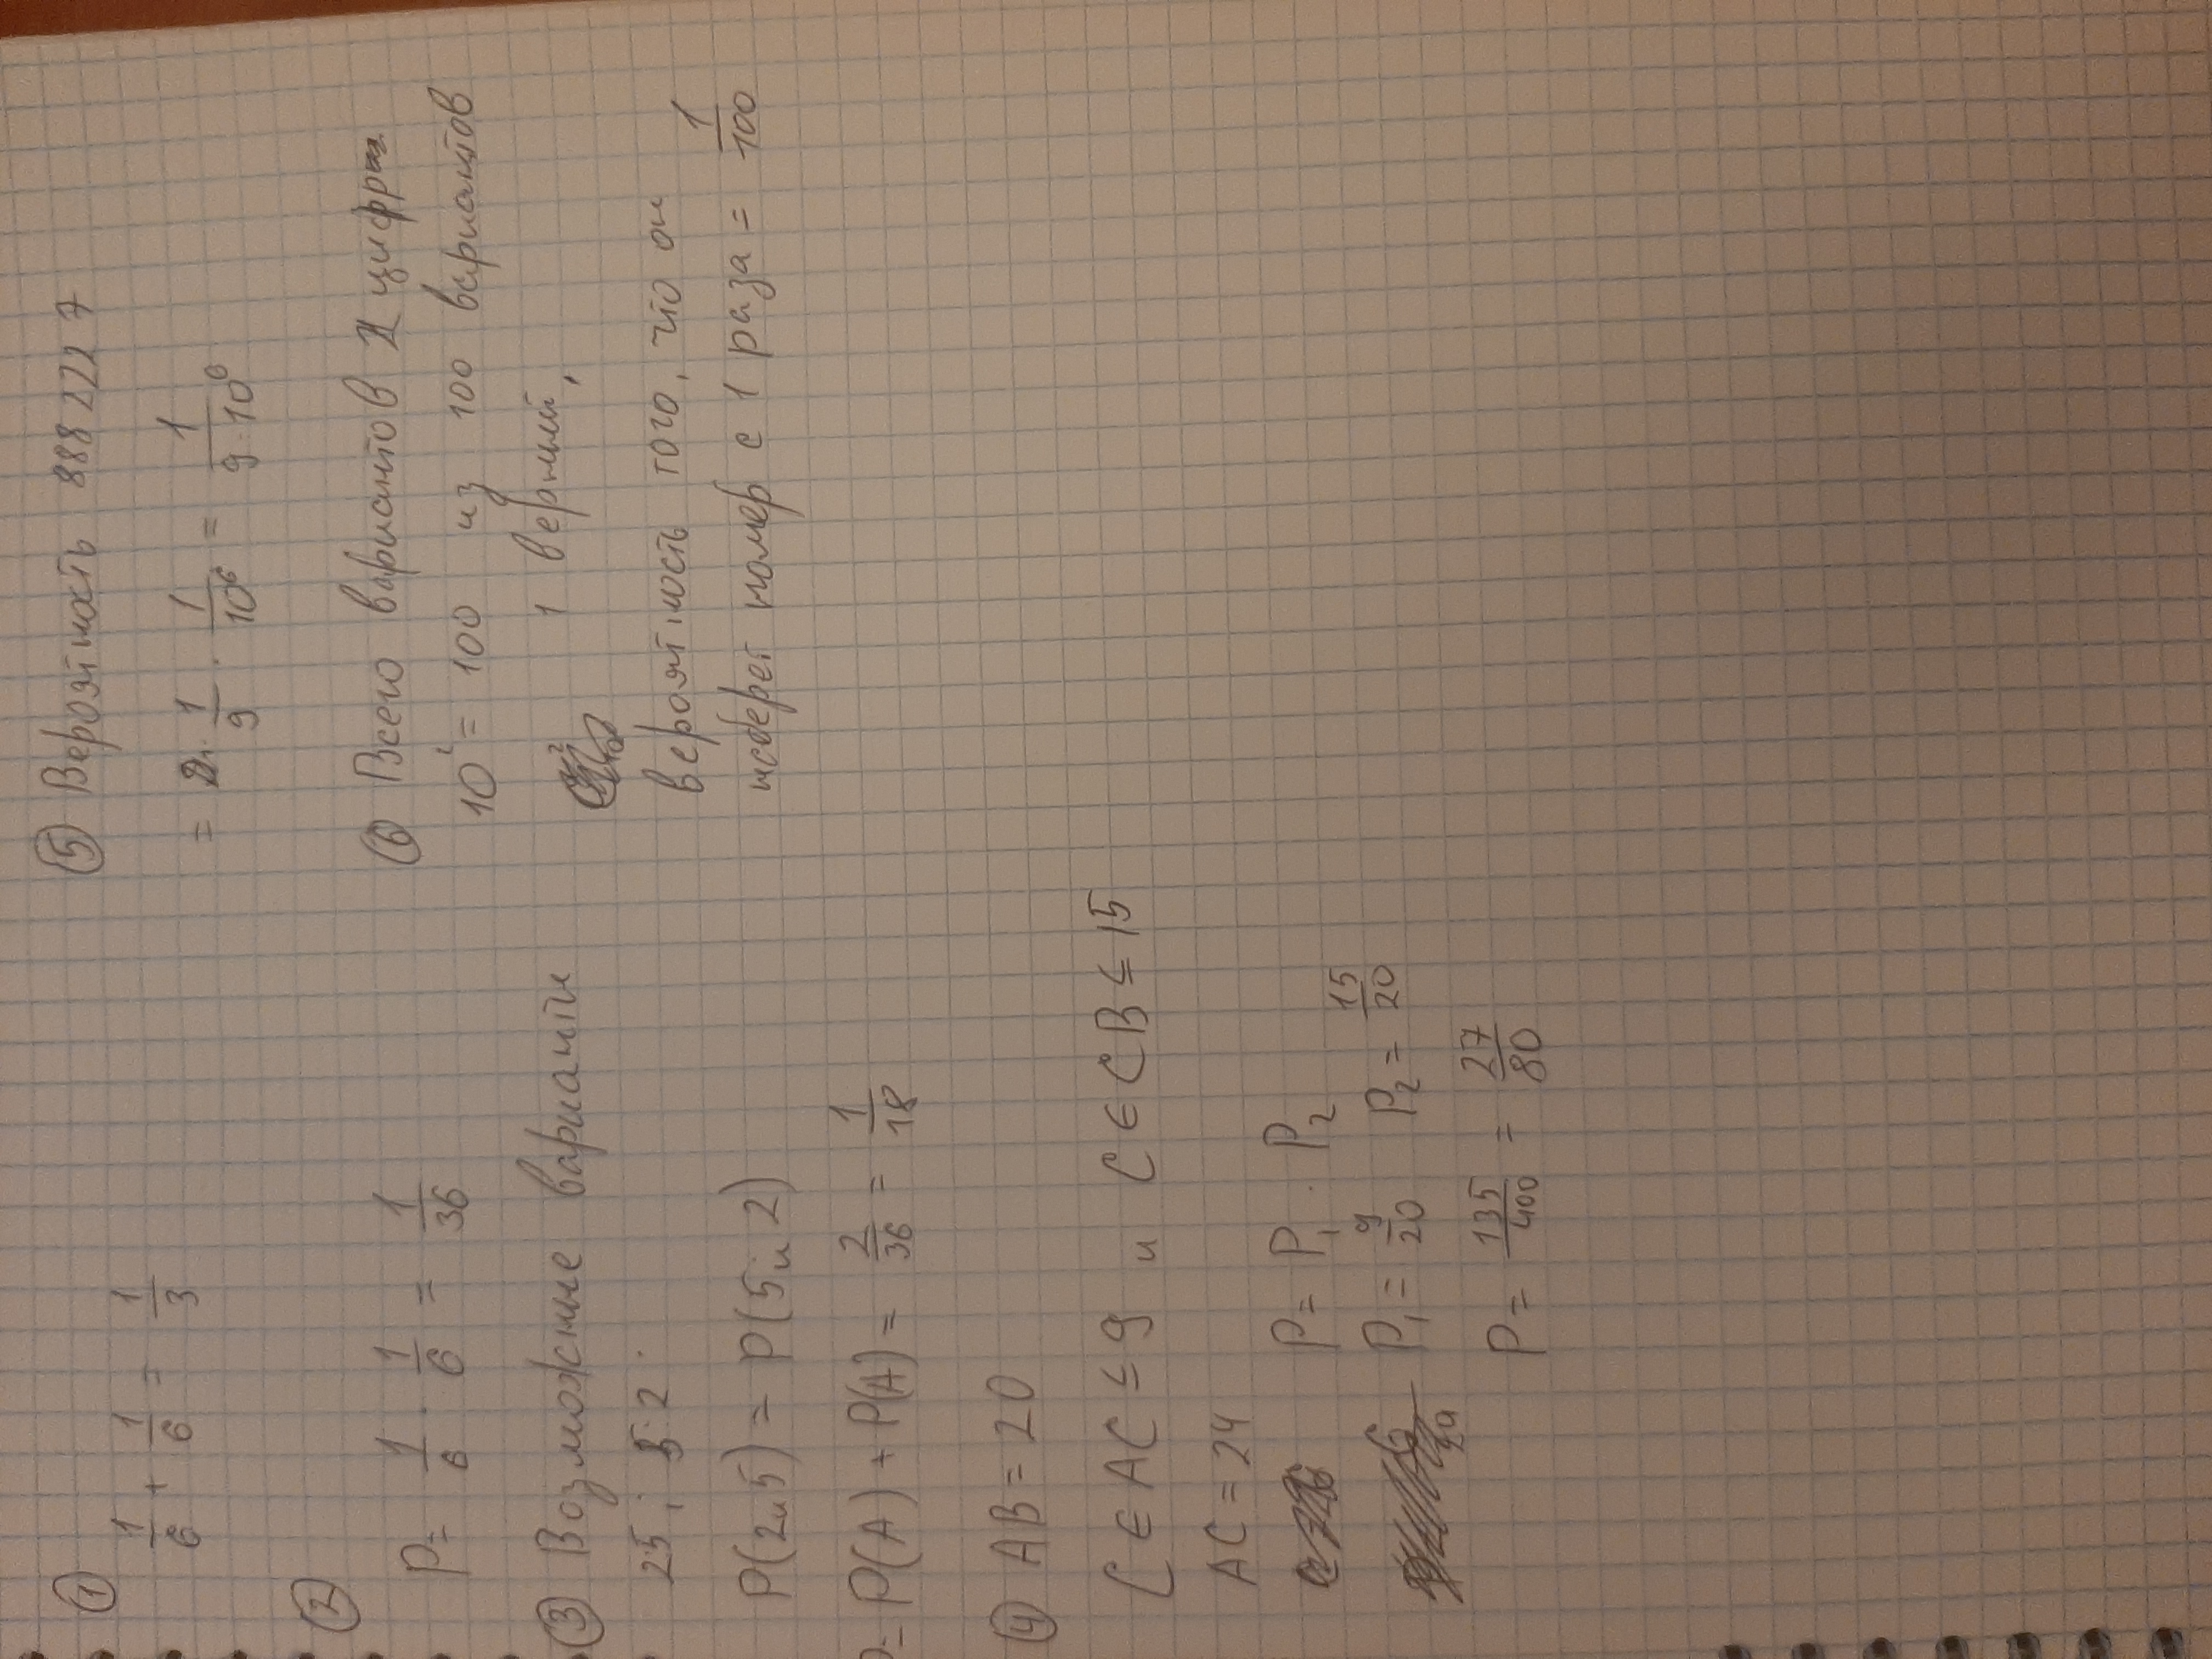 ①
1/6 + 1/6 = 1/3
②
P = 1/6 · 1/6 = 1/36
③ Возможные варианты
2 5 ; 5 2
P(2 и 5) = P(5 и 2)
P(A) + P(A) = 2/36 = 1/18
④ AB = 20
C ∈ AC ≤ 9 и C ∈ CB ≤ 15
AC = 24
P = P₁ · P₂
P₁ = 9/20 P₂ = 15/20
P = 135/400 = 27/80
⑤ Вероятность 888 222 7
= 1/9 · 1/10⁶ = 1/9·10⁶
⑥ Всего вариантов цифр
10² = 100 из 100 вариантов
1 верный,
вероятность того, что он
наберет номер с 1 раза = 1/100